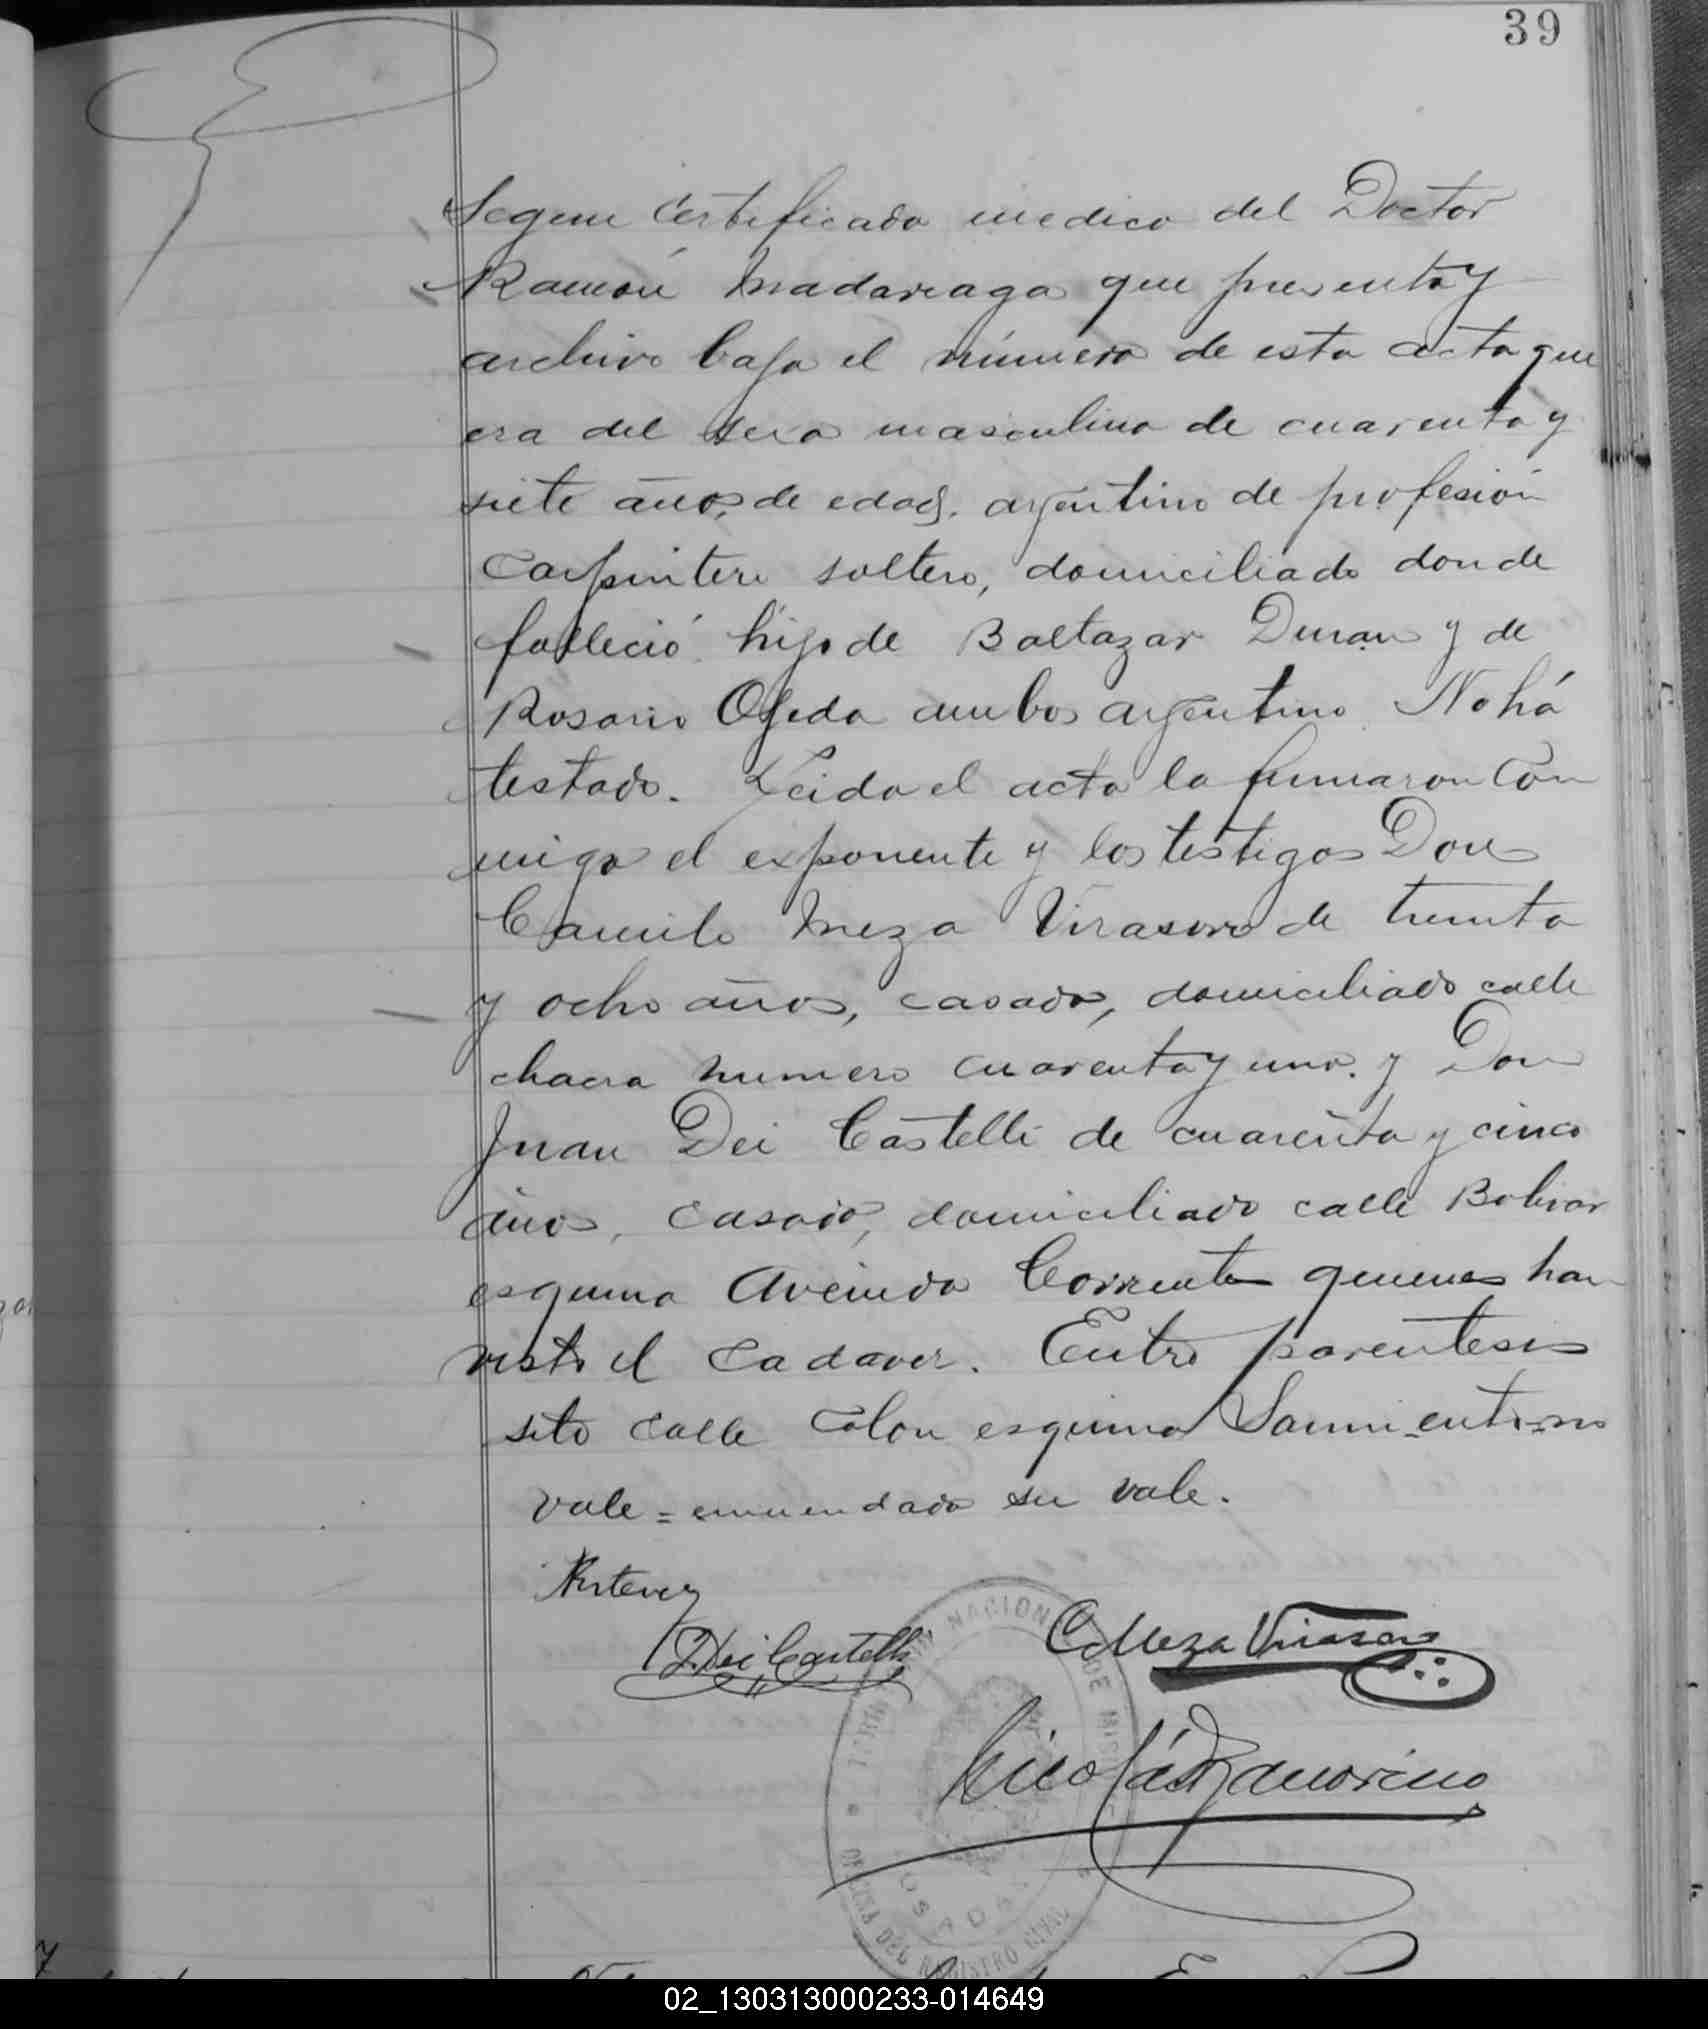 39
Segun certificado medico del Doctor
Ramón Madariaga que presenta y
archivo bajo el número de esta acta que
era del sexo masculino de cuarenta y
siete años de edad, argentino de profesión
carpintero soltero, domiciliado donde
falleció hijo de Baltazar Duran y de
Rosario Ojeda ambos argentino No há
testado. Leida el acta la firmaron con
migo el exponente y los testigos Don
Camilo Meza Virasoro de treinta
y ocho años, casado, domiciliado calle
chacra numero cuarenta y uno. y Don
Juan Dei Castelli de cuarenta y cinco
años, casado, domiciliado calle Bolivar
esquina Avenida Corrientes quienes han
visto el cadaver. Entre parentesis
sito calle Colon esquina Sarmiento=no
vale=enmendado su vale.
J. Dei Castelli
C Meza Virasoro
Nicolás
NACIONAL DE MISIONES
POSADAS
OFICINA DEL REGISTRO CIVIL
02_130313000233-014649